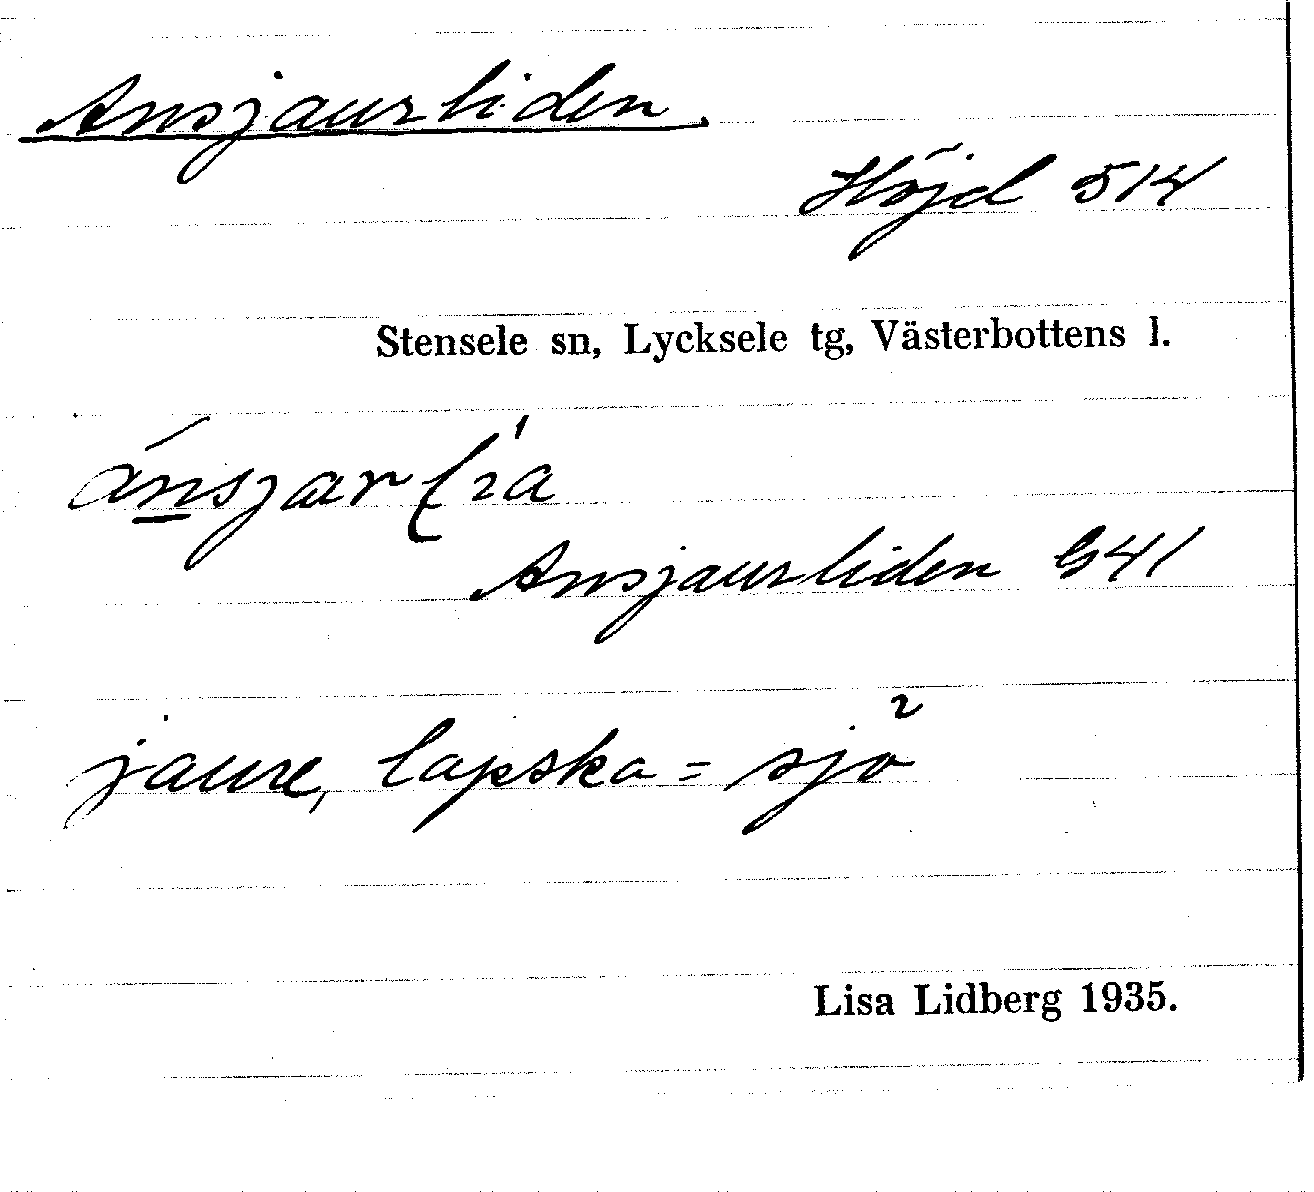 Ansjaurliden.
Höjd 514
Stensele sn, Lycksele tg, Västerbottens l.
ánsjarlıa
Ansjaurliden G41
jaure, lapska = sjö
Lisa Lidberg 1935.